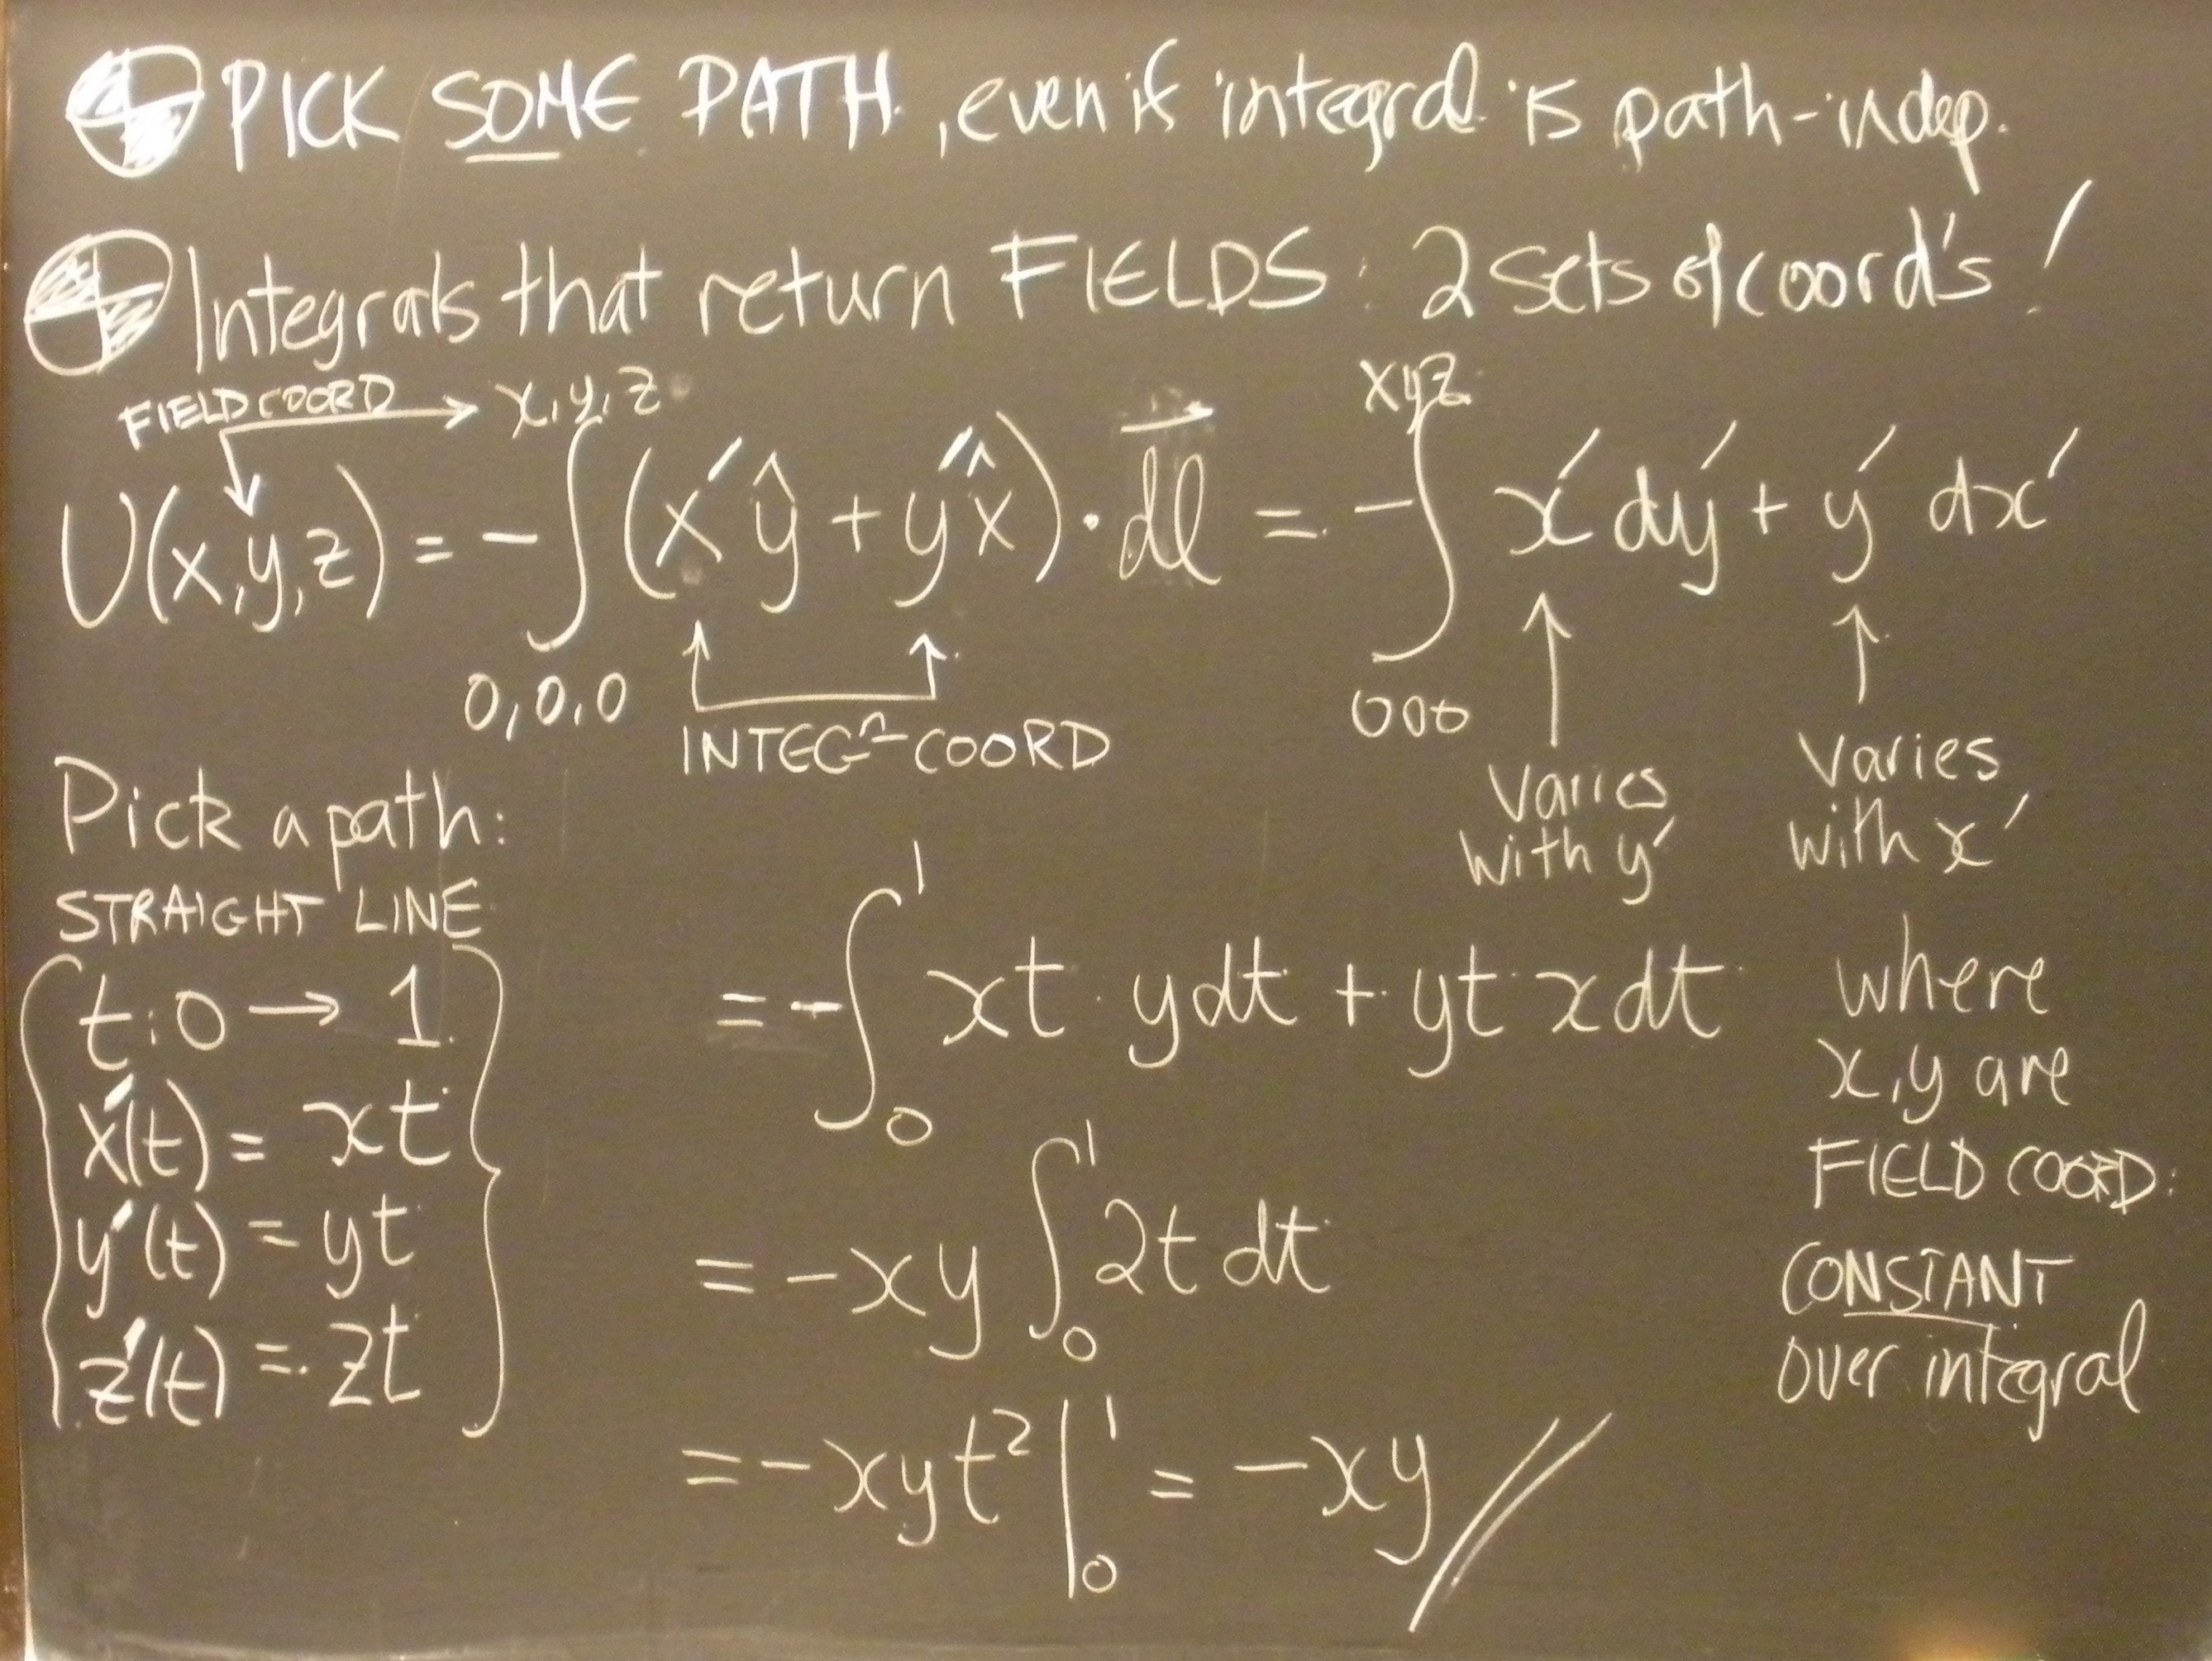 PICK SOME PATH, even if integral is path-indep.
Integrals that return FIELDS: 2 sets of coord's!
FIELD COORD → x,y,z
U(x,y,z) = -∫ (x'ŷ + y'x̂)·dl⃗ = -∫ x'dy' + y'dx'
xyz
0,0,0
000
INTEGⁿ COORD
Varies with y'
Varies with x'
Pick a path:
STRAIGHT LINE
t: 0 → 1
x'(t) = xt
y'(t) = yt
z'(t) = zt
= -∫₀¹ xt ydt + yt xdt
where
x,y are
FIELD COORD:
CONSTANT
over integral
= -xy ∫₀¹ 2t dt
= -xyt² |₀¹ = -xy //